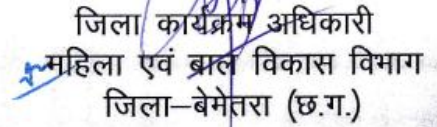 जिला कार्यक्रम अधिकारी
महिला एवं बाल विकास विभाग
जिला–बेमेतरा (छ.ग.)